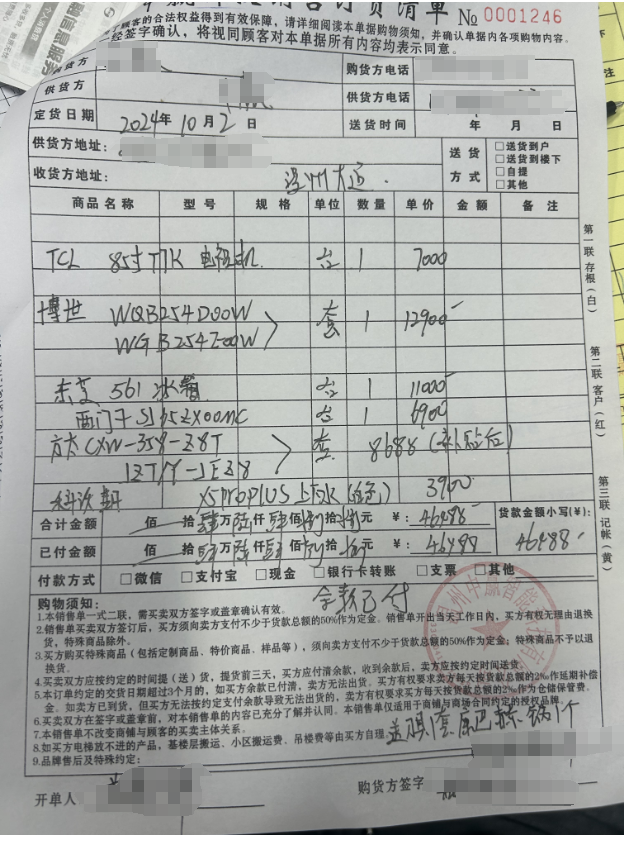 订货清单 No 0001246
顾客的合法权益得到有效保障,请详细阅读本单据购物须知,并确认单据内各项购物内容。
经签字确认,将视同顾客对本单据所有内容均表示同意。
方 购货方电话
供货方 供货方电话
定货日期 2024年10月2日 送货时间 年 月 日
供货方地址: 送货方式 □送货到户 □送货到楼下 □自提 □其他
收货方地址:
商品名称 型号 规格 单位 数量 单价 金额 备注
TCL 85寸T7K 电视机 台 1 7000
博世 WQB254D00W 套 1 12900
WGB254Z00W
561 冰箱 台 1 11000
西门子 台 1 6900
方太 CXW-358-Z8T 套 8688(补贴后)
JZT/Y-JEZ8
科沃斯 X5ProPLUS 上下水 3900
合计金额 佰 拾 万 仟 佰 拾 元 ¥:46488 贷款金额小写(¥):
已付金额 佰 拾 万 仟 佰 拾 元 ¥:46488 46488
付款方式 □微信 □支付宝 □现金 □银行卡转账 □支票 □其他
余款已付
购物须知:
1.本销售单一式二联,需买卖双方签字或盖章确认有效。
2.销售单买卖双方签订后,买方须向卖方支付不少于货款总额的50%作为定金。销售单开出当天工作日内,买方有权无理由退换
货,特殊商品除外。
3.买方购买特殊商品(包括定制商品、特价商品、样品等),须向卖方支付不少于货款总额的50%作为定金;特殊商品不予以退
换货。
4.买卖双方应按约定的时间提(送)货,提货前三天,买方应付清余款,收到余款后,卖方应按约定时间送货。
5.本订单约定的交货日期超过3个月的,如买方余款已付清,卖方无法出货。买方有权要求卖方每天按货款总额的2‰作延期补偿
金。如卖方已到货,但买方无法按约定支付余款导致无法出货的,卖方有权要求买方每天按货款总额的2‰作为仓储保管费。
6.买卖双方在签字或盖章前,对本销售单的内容已充分了解并认同。本销售单仅适用于商铺与商场合同约定的授权品牌。
7.本销售单不改变商铺与顾客的买卖主体关系。
8.如买方电梯放不进的产品,基楼层搬运、小区搬运费、吊楼费等由买方自理
9.品牌售后及特殊约定:
开单人 购货方签字
第一联 存根(白)
第二联 客户(红)
第三联 记帐(黄)